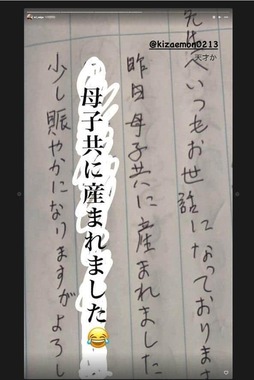 @kizaemon0213
天才か
いつもお世話になっておりま
昨日母子共に産まれました
母子共に産まれました😂
少し賑やかになりますがよろし